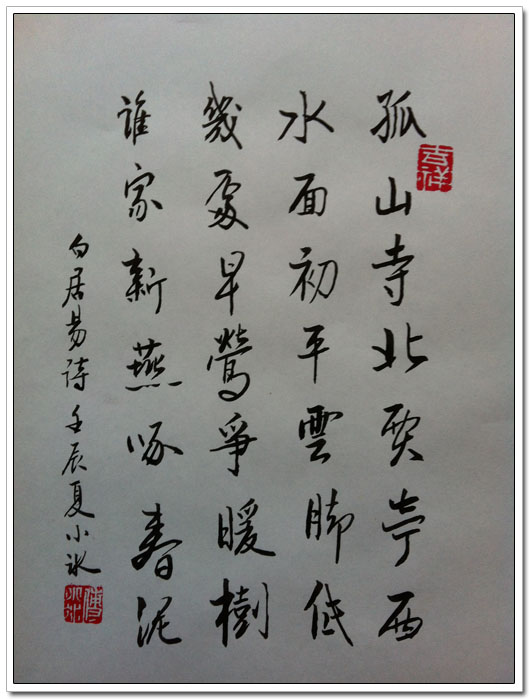 孤山寺北賈亭西
水面初平雲脚低
幾處早鶯爭暖樹
誰家新燕啄春泥
白居易詩 壬辰夏小冰
吉祥
傅小冰